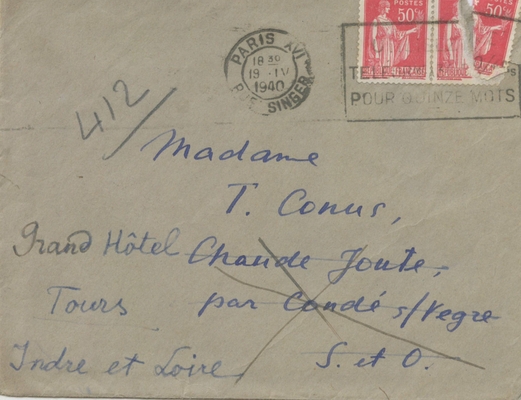 POSTES
50c
PARIS XVI
18 30
19 - IV
1940
R. SINGER
POUR QUINZE MOTS
412
Madame
T. Conus,
Grand Hôtel Chaude Joute,
Tours par Condé s/Vegre
Indre et Loire S. et O.